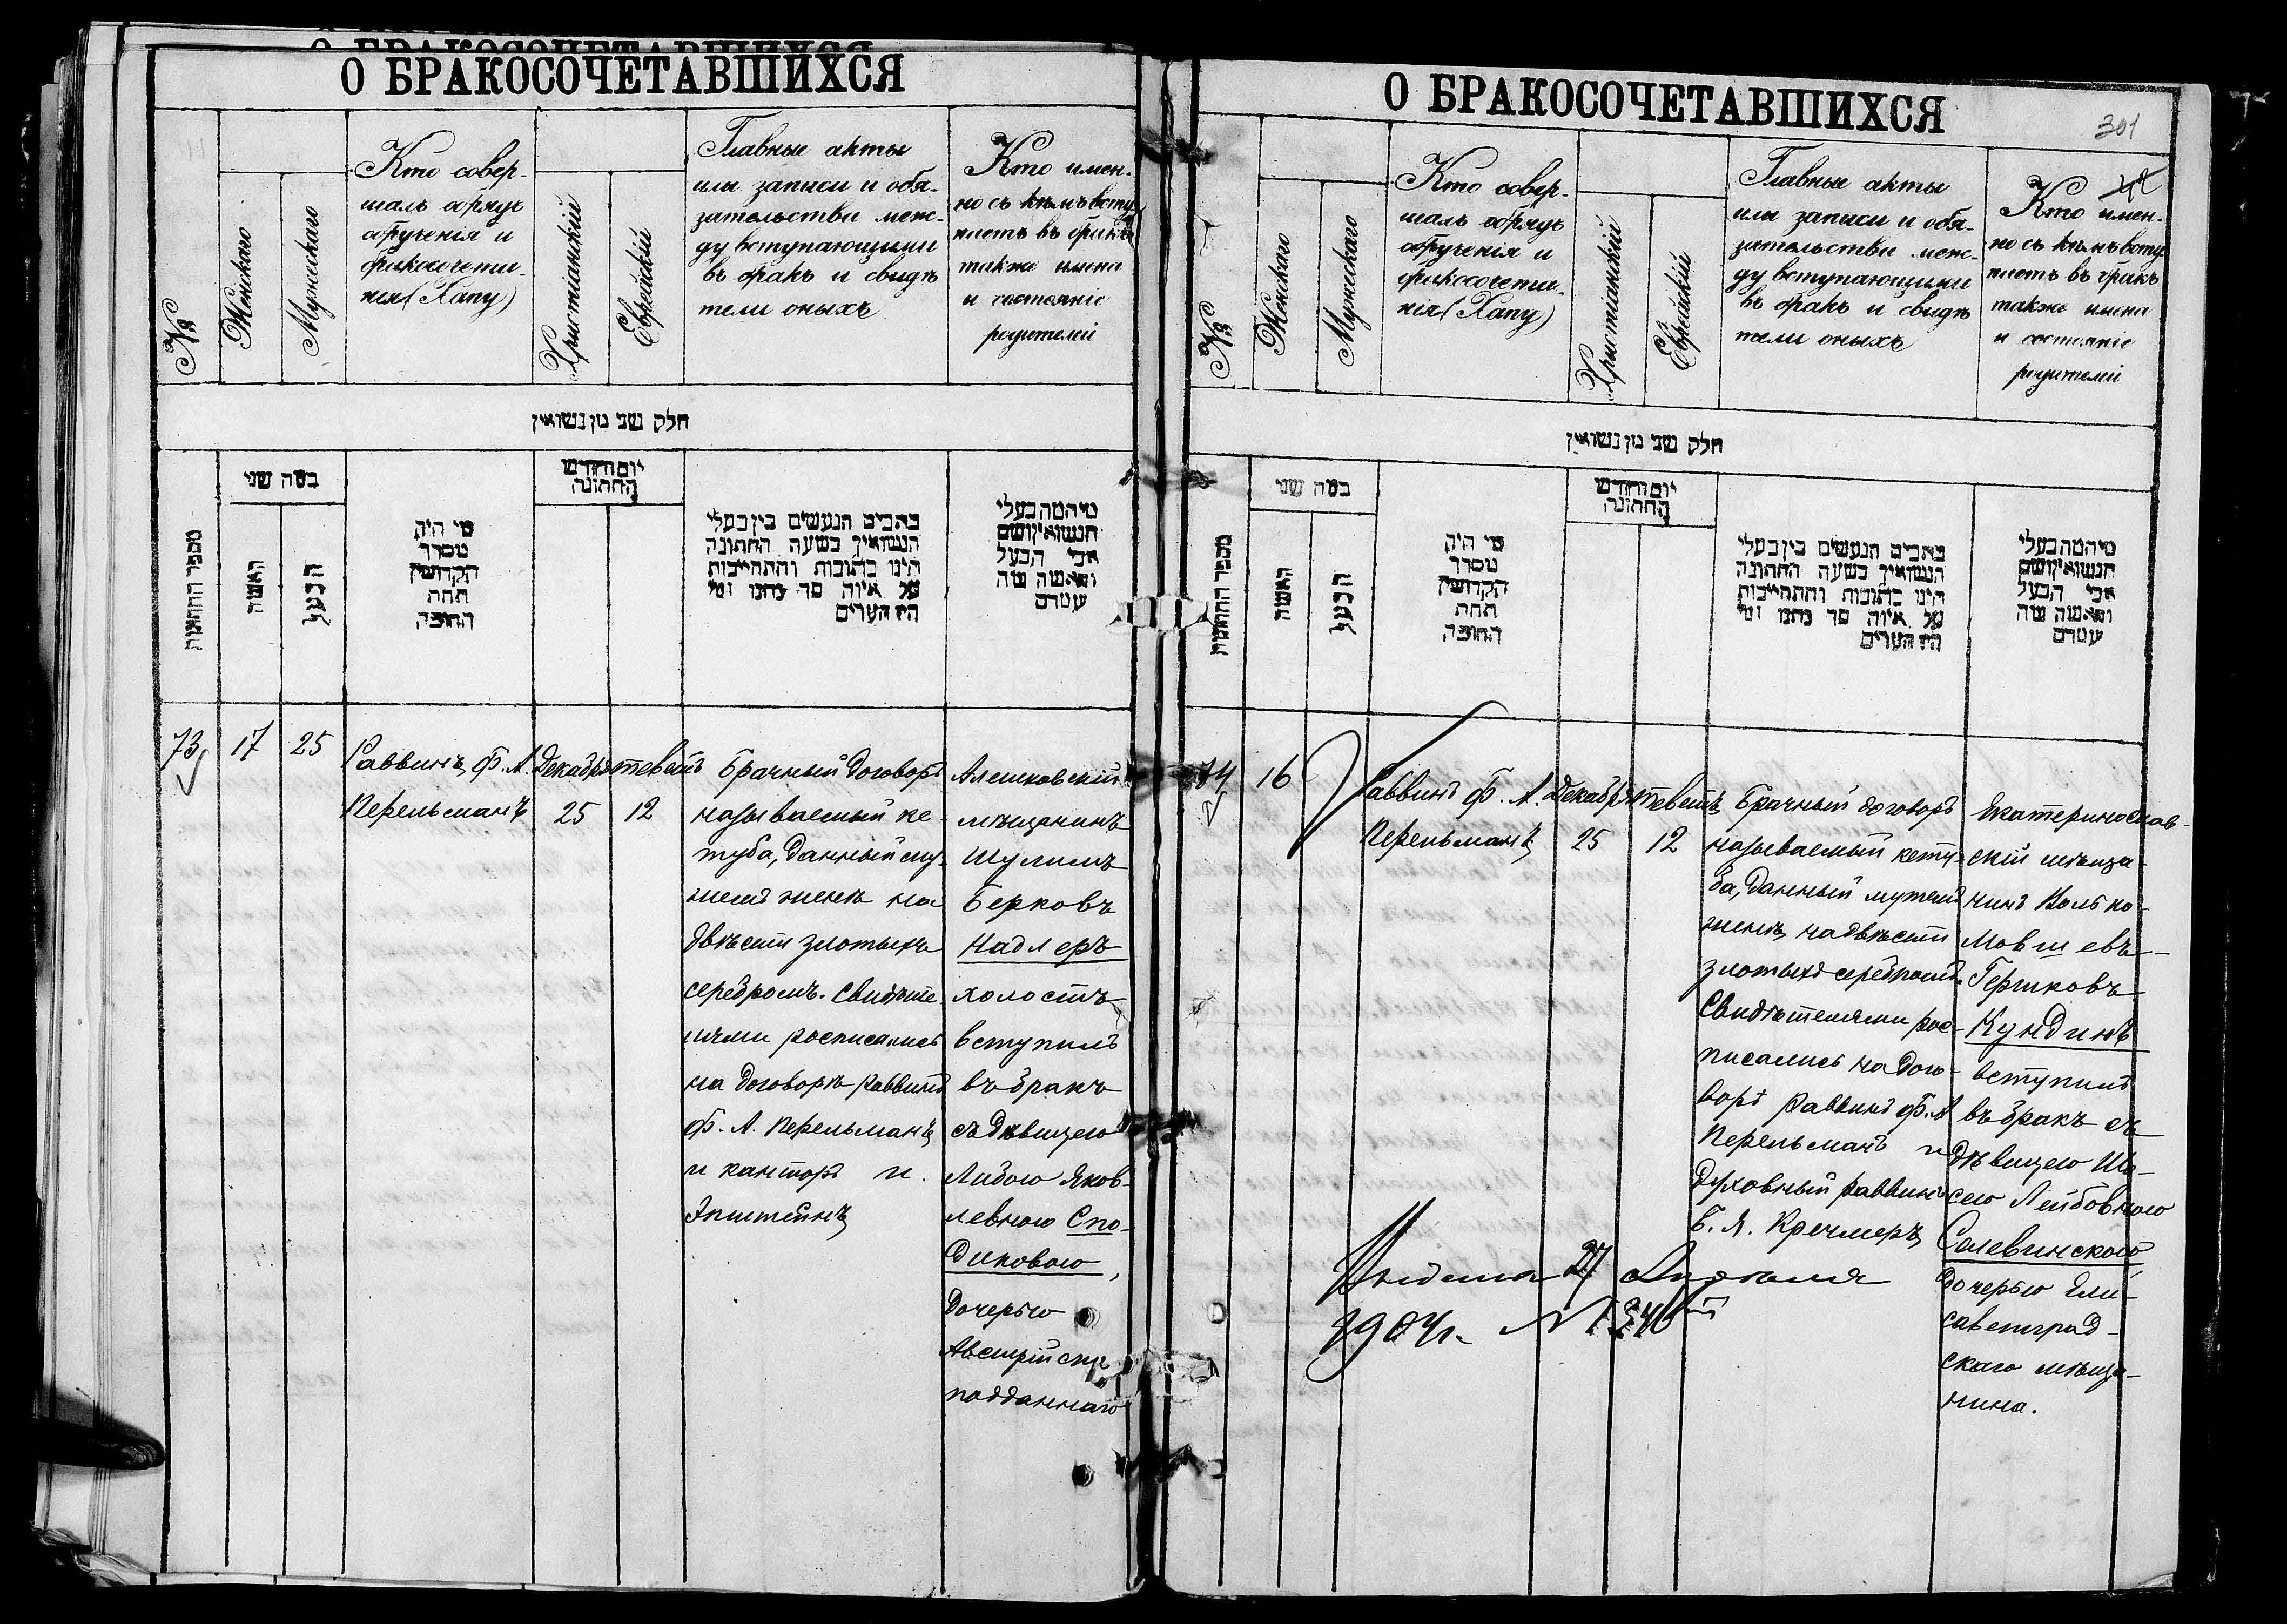 О БРАКОСОЧЕТАВШИХСЯ
№
Женскаго
Мужескаго
Кто совер-
шалъ обрядъ
обрученія и
бракосочета-
нія (Хапу)
Христіанскій
Еврейскій
Главные акты
или записи и обя-
зательства меж-
ду вступающими
въ бракъ и свидѣ
тели оныхъ
Кто имен-
но съ кѣмъ всту
паетъ въ бракъ
также имена
и состояніе
родителей
חלק שני מן נשואין
מספר החתונות
כמה שני
האשה
הבעל
מי היה
מסדר
הקדושין
תחת
החופה
יום וחודש
החתונה
כתבים הנעשים בין בעלי
הנשואין בשעה החתונה
היינו כתובות והתחייבות
על איזה סך נתנו ומי
היו העדים
מי המה בעלי
הנשואין ושם
אבי הבעל
והאשה ומה
עמדם
73
17
25
Раввинъ Ф. А.
Перельманъ
Декабря
25
теветъ
12
Брачный договоръ
называемый ке-
туба, данный му-
жемъ женѣ на
двѣсти злотыхъ
серебромъ. Свидѣте-
лями росписались
на договорѣ раввинъ
Ф. А. Перельманъ
и канторъ И.
Эпштейнъ
Алешковскій
мѣщанинъ
Шулимъ
Берковъ
Надлеръ
холостъ
вступилъ
въ бракъ
съ дѣвицею
Либою Яков-
левною Спо-
диковою,
дочерью
Австрійск.
подданнаго
О БРАКОСОЧЕТАВШИХСЯ
301
№
Женскаго
Мужескаго
Кто совер-
шалъ обрядъ
обрученія и
бракосочета-
нія (Хапу)
Христіанскій
Еврейскій
Главные акты
или записи и обя-
зательства меж-
ду вступающими
въ бракъ и свидѣ
тели оныхъ
Кто имен-
но съ кѣмъ всту
паетъ въ бракъ
также имена
и состояніе
родителей
חלק שני מן נשואין
מספר החתונות
כמה שני
האשה
הבעל
מי היה
מסדר
הקדושין
תחת
החופה
יום וחודש
החתונה
כתבים הנעשים בין בעלי
הנשואין בשעה החתונה
היינו כתובות והתחייבות
על איזה סך נתנו ומי
היו העדים
מי המה בעלי
הנשואין ושם
אבי הבעל
והאשה ומה
עמדם
74
16
Раввинъ Ф. А.
Перельманъ
Декабря
25
теветъ
12
Брачный договоръ
называемый кету-
ба, данный мужемъ
женѣ на двѣсти
злотыхъ серебромъ.
Свидѣтелями рос-
писались на дого-
ворѣ раввинъ Ф. А.
Перельманъ и
духовный раввинъ
Б. Я. Кречмеръ
Екатеринослав-
скій мѣща-
нинъ Волько-
Мовшевъ-
Гершковъ
Кундинъ
вступилъ
въ бракъ съ
дѣвицею Ше-
сею Лейбовною
Солевинскою
дочерью Ели-
саветград-
скаго мѣща-
нина.
27 Апреля
1904г. №